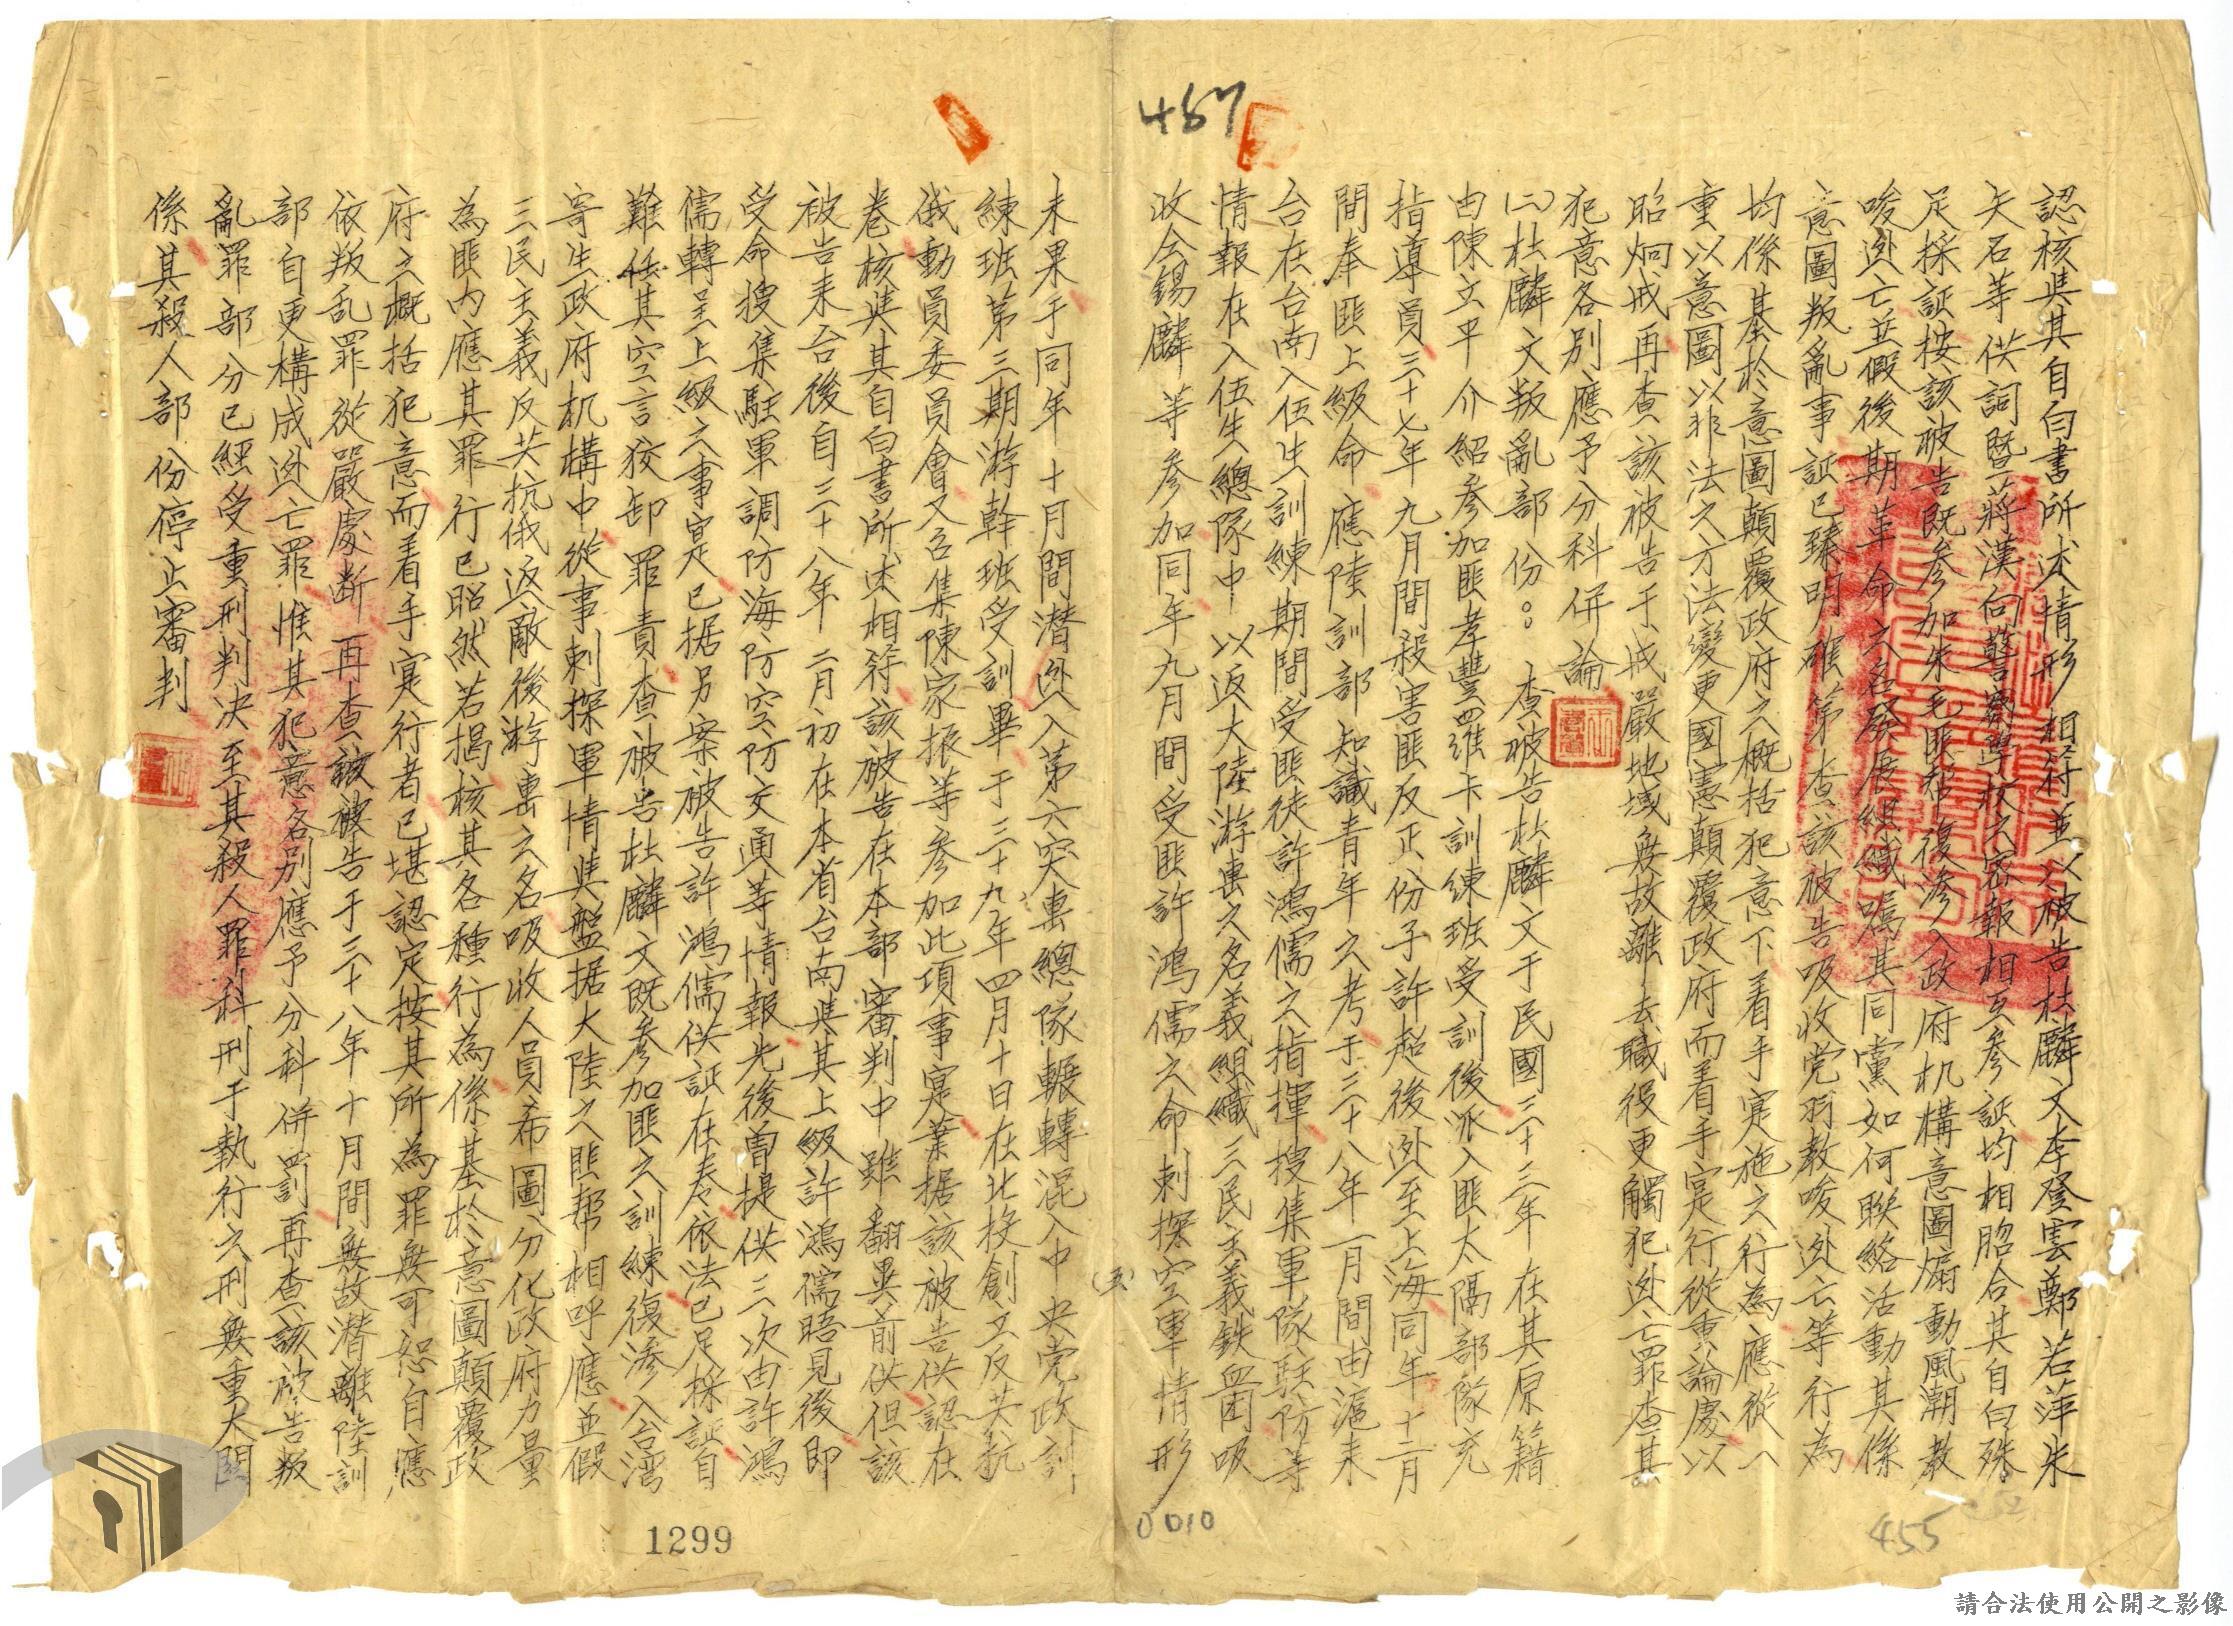 457
認核與其自白書所述情形相符並以被告杜麟文李登雲鄭若萍朱
矢石等供詞暨蔣漢向警察學校之密報相互參証均相脗合其自白殊
足採証按該被告既參加朱毛匪帮復滲入政府机構意圖煽動風潮教
唆逃亡並假後期革命之名發展組織囑其同黨如何聯絡活動其係
意圖叛亂事証已臻明確第查該被告吸收党羽教唆逃亡等行為
均係基於意圖顛覆政府之概括犯意下着手寔施之行為應從一
重以意圖以非法之方法變更國憲顛覆政府而着手寔行從重論處以
昭炯戒再查該被告于戒嚴地域無故離去職役更觸犯逃亡罪查其
犯意各別應予分科併論
(二)杜麟文叛亂部份：查被告杜麟文于民國三十三年在其原籍
由陳立平介紹參加匪孝豐四維卡訓練班受訓後派入匪太隔部隊充
指導員三十七年九月間殺害匪反正份子許超後逃至上海同年十二月
間奉匪上級命應陸訓部知識青年之考于三十八年一月間由滬来
台在台南入伍生訓練期間受匪徒許鴻儒之指揮搜集軍隊駐防等
情報在入伍生總隊中以返大陸游擊之名義組織三民主義鉄血團吸
收仝錫麟等參加同年九月間受匪許鴻儒之命刺探空軍情形
未果于同年十月間潜逃入第六突擊總隊輾轉混入中央党政訓
練班第三期游幹班受訓畢于三十九年四月十日在北投創立反共抗
俄動員委員會又召集陳家振等參加此項事寔業据該被告供認在
卷核與其自白書所述相符該被告在本部審判中雖翻異前供但該
被告来台後自三十八年二月初在本省台南與其上級許鴻儒晤見後即
受命搜集駐軍調防海防空防交通等情報先後曽提供三次由許鴻
儒轉呈上級之事寔已据另案被告許鴻儒供証在卷依法已足採証自
難任其空言狡卸罪責查被告杜麟文既參加匪之訓練復滲入台湾
寄生政府机構中從事刺探軍情與盤据大陸之匪帮相呼應並假
三民主義反共抗俄返敵後游擊之名吸收人員希圖分化政府力量
為匪內應其罪行已昭然若揭核其各種行為係基於意圖顛覆政
府之概括犯意而着手寔行者已堪認定按其所為罪無可恕自應
依叛乱罪從嚴處断再查該被告于三十八年十月間無故潜離陸訓
部自更構成逃亡罪惟其犯意各別應予分科併罰再查該被告叛
亂罪部分已經受重刑判决至其殺人罪科刑于執行之刑無重大關
係其殺人部份停止審判
(五)
1299
0010
455
請合法使用公開之影像